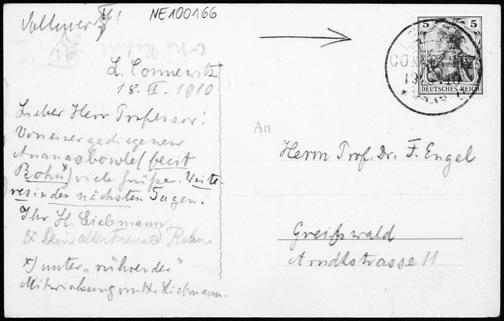 NE100166
L. Connewitz
18. II. 1910
Lieber Herr Professor!
Von einer gediegenen
Ananasbowle (fecit
Rohn*) viele Grüße. Weite-
res in den nächsten Tagen.
Ihr H. Liebmann
& Dein alter Freund Rohn
*) unter „rührender"
Mitwirkung von H. Liebmann.
5 5
DEUTSCHES REICH
An
Herrn Prof. Dr. F. Engel
Greifswald
Arndtstrasse 11